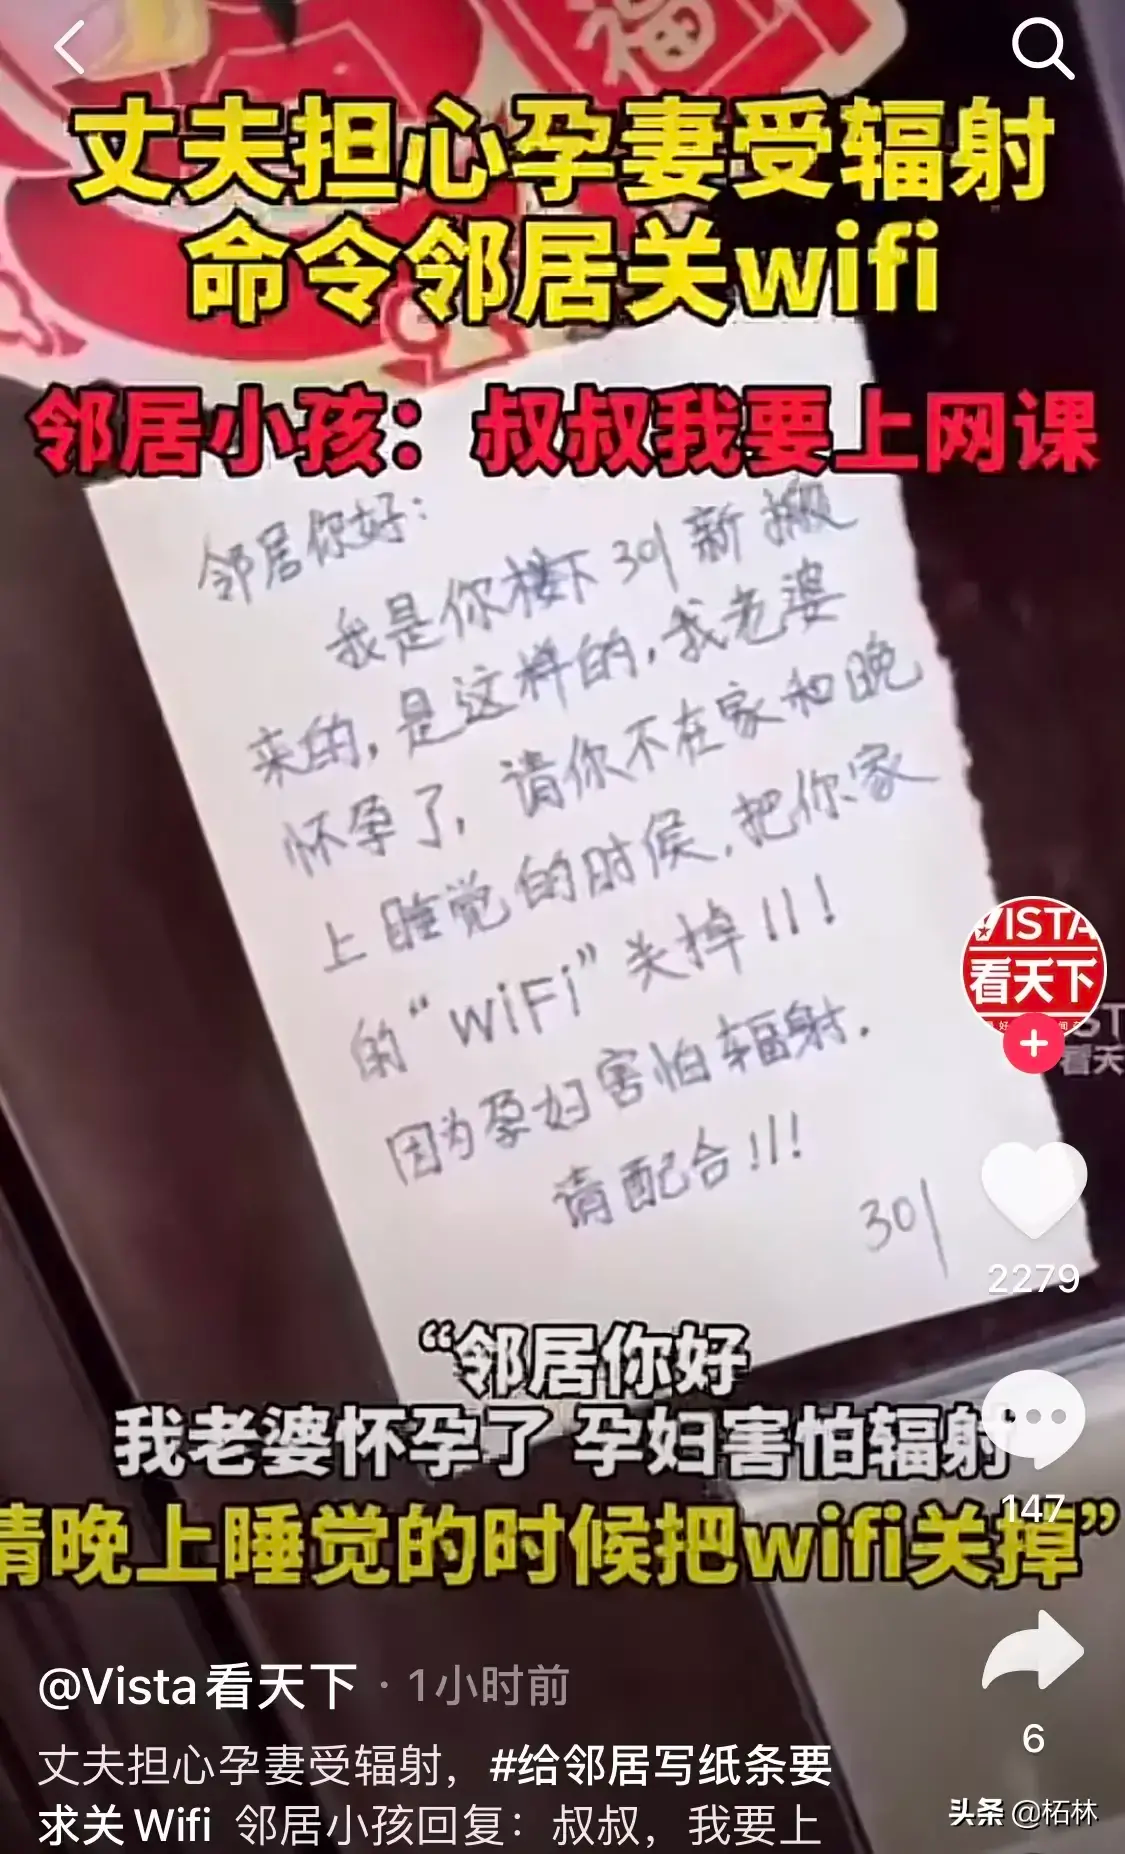 福
丈夫担心孕妻受辐射
命令邻居关wifi
邻居小孩：叔叔我要上网课
邻居你好：
我是你楼下301新搬
来的，是这样的，我老婆
怀孕了，请你不在家和晚
上睡觉的时候，把你家
的“WiFi”关掉!!!
因为孕妇害怕辐射.
请配合!!!
301
VISTA
看天下
看天
2279
“邻居你好
我老婆怀孕了 孕妇害怕辐射
147
请晚上睡觉的时候把wifi关掉”
@Vista看天下 · 1小时前
6
丈夫担心孕妻受辐射，#给邻居写纸条要
求关Wifi 邻居小孩回复：叔叔，我要上
头条 @柘林